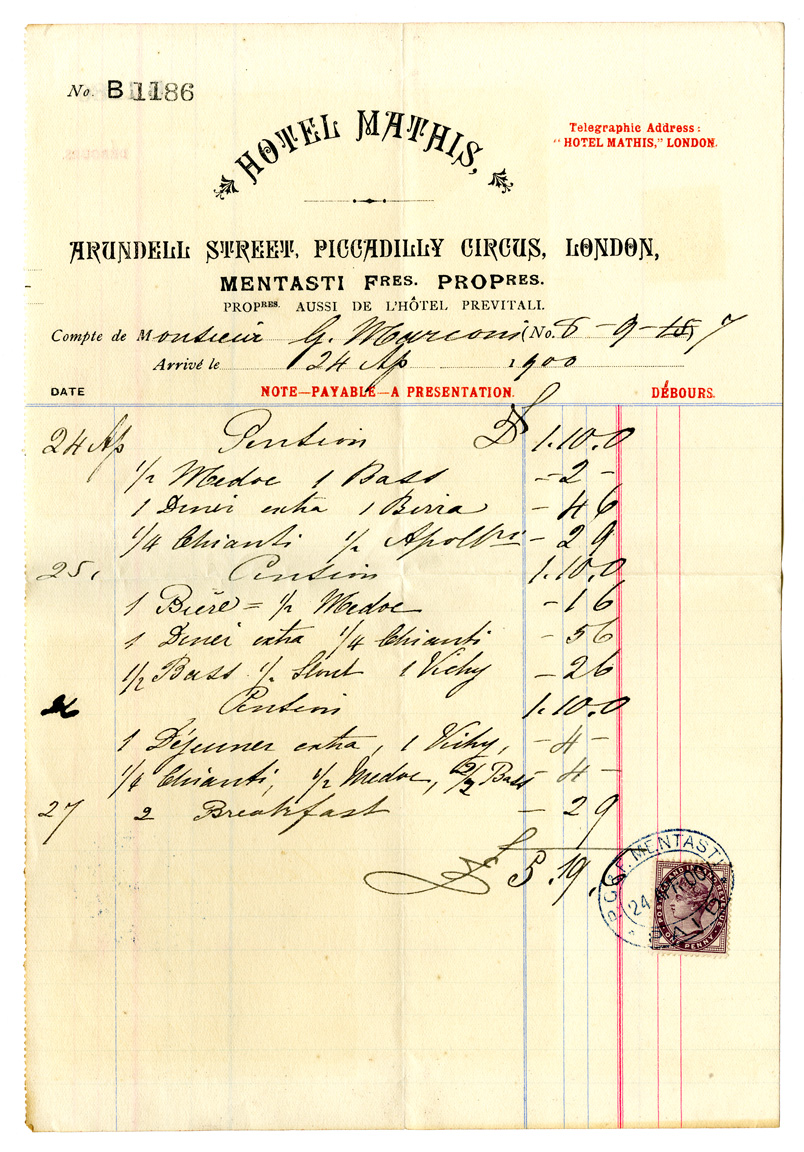 No. B 1186
HOTEL MATHIS,
Telegraphic Address:
"HOTEL MATHIS," LONDON.
ARUNDELL STREET, PICCADILLY CIRCUS, LONDON,
MENTASTI FRES. PROPRES.
PROPRES. AUSSI DE L'HÔTEL PREVITALI.
Compte de Monsieur G. Marconi (No. 8-9-10) 7
Arrivé le 24 Ap 1900
DATE NOTE—PAYABLE—A PRESENTATION. DÉBOURS.
24 Ap Pension £ 1.10.0
1/2 Medoc 1 Bass - 2 -
1 Diner extra 1 Birra - 4 6
1/4 Chianti 1/2 Apollris - 2 9
25, Pension 1.10.0
1 Bière = 1/2 Medoc - 1 6
1 Diner extra 1/4 Chianti - 5 6
1/2 Bass 1/2 Stout 1 Vichy - 2 6
26 Pension 1.10.0
1 Déjeuner extra, 1 Vichy, - 4 -
1/4 Chianti, 1/2 Medoc, 2/2 Bass - 4 -
27 2 Breakfast - 2 9
£ 5.19.
P.C. & F. MENTASTI
24 00
POSTAGE AND INLAND REVENUE
ONE PENNY